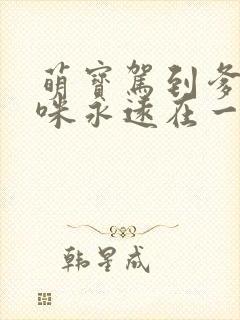 萌宝駕到爹
咪永遠在一
韩星成